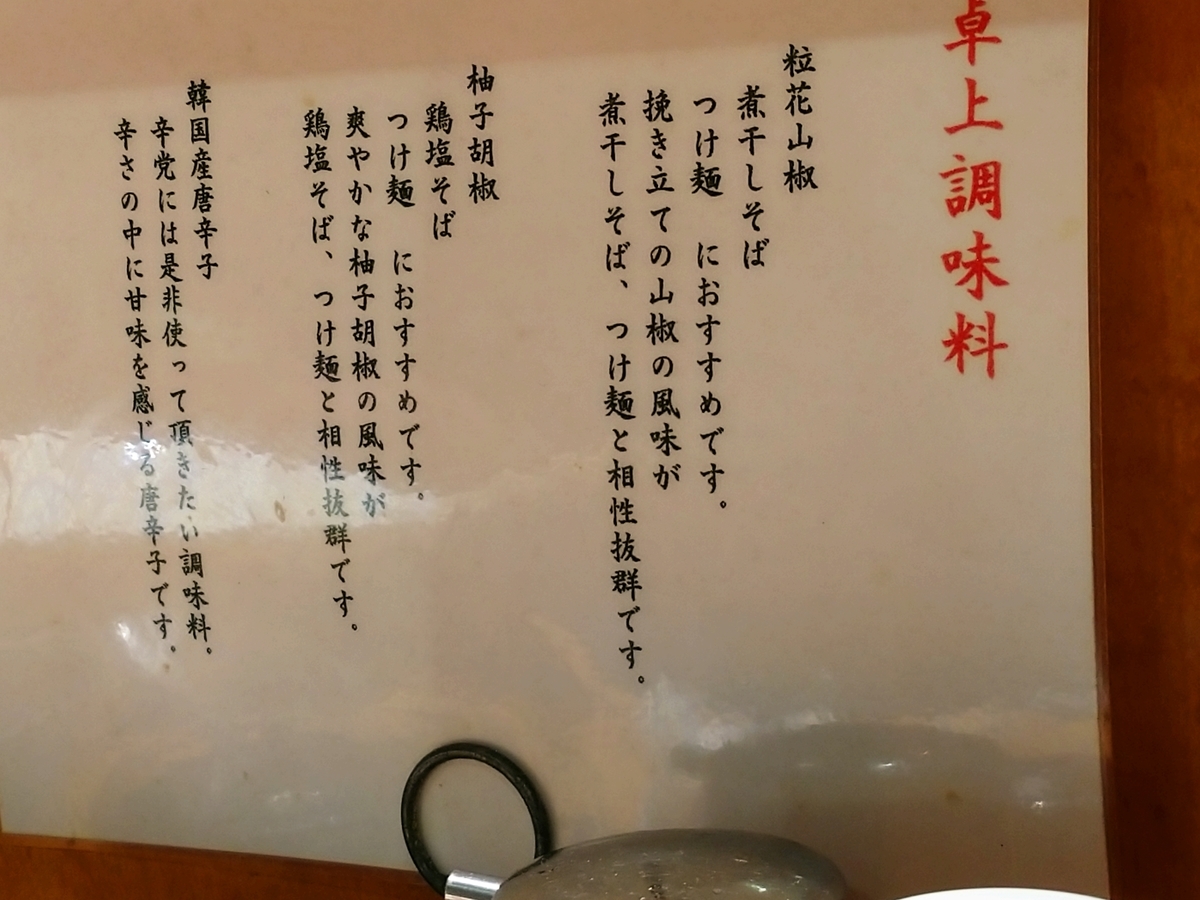 卓上調味料
粒花山椒
煮干しそば
つけ麺　におすすめです。
挽き立ての山椒の風味が
煮干しそば、つけ麺と相性抜群です。
柚子胡椒
鶏塩そば
つけ麺　におすすめです。
爽やかな柚子胡椒の風味が
鶏塩そば、つけ麺と相性抜群です。
韓国産唐辛子
辛党には是非使って頂きたい調味料。
辛さの中に甘味を感じる唐辛子です。